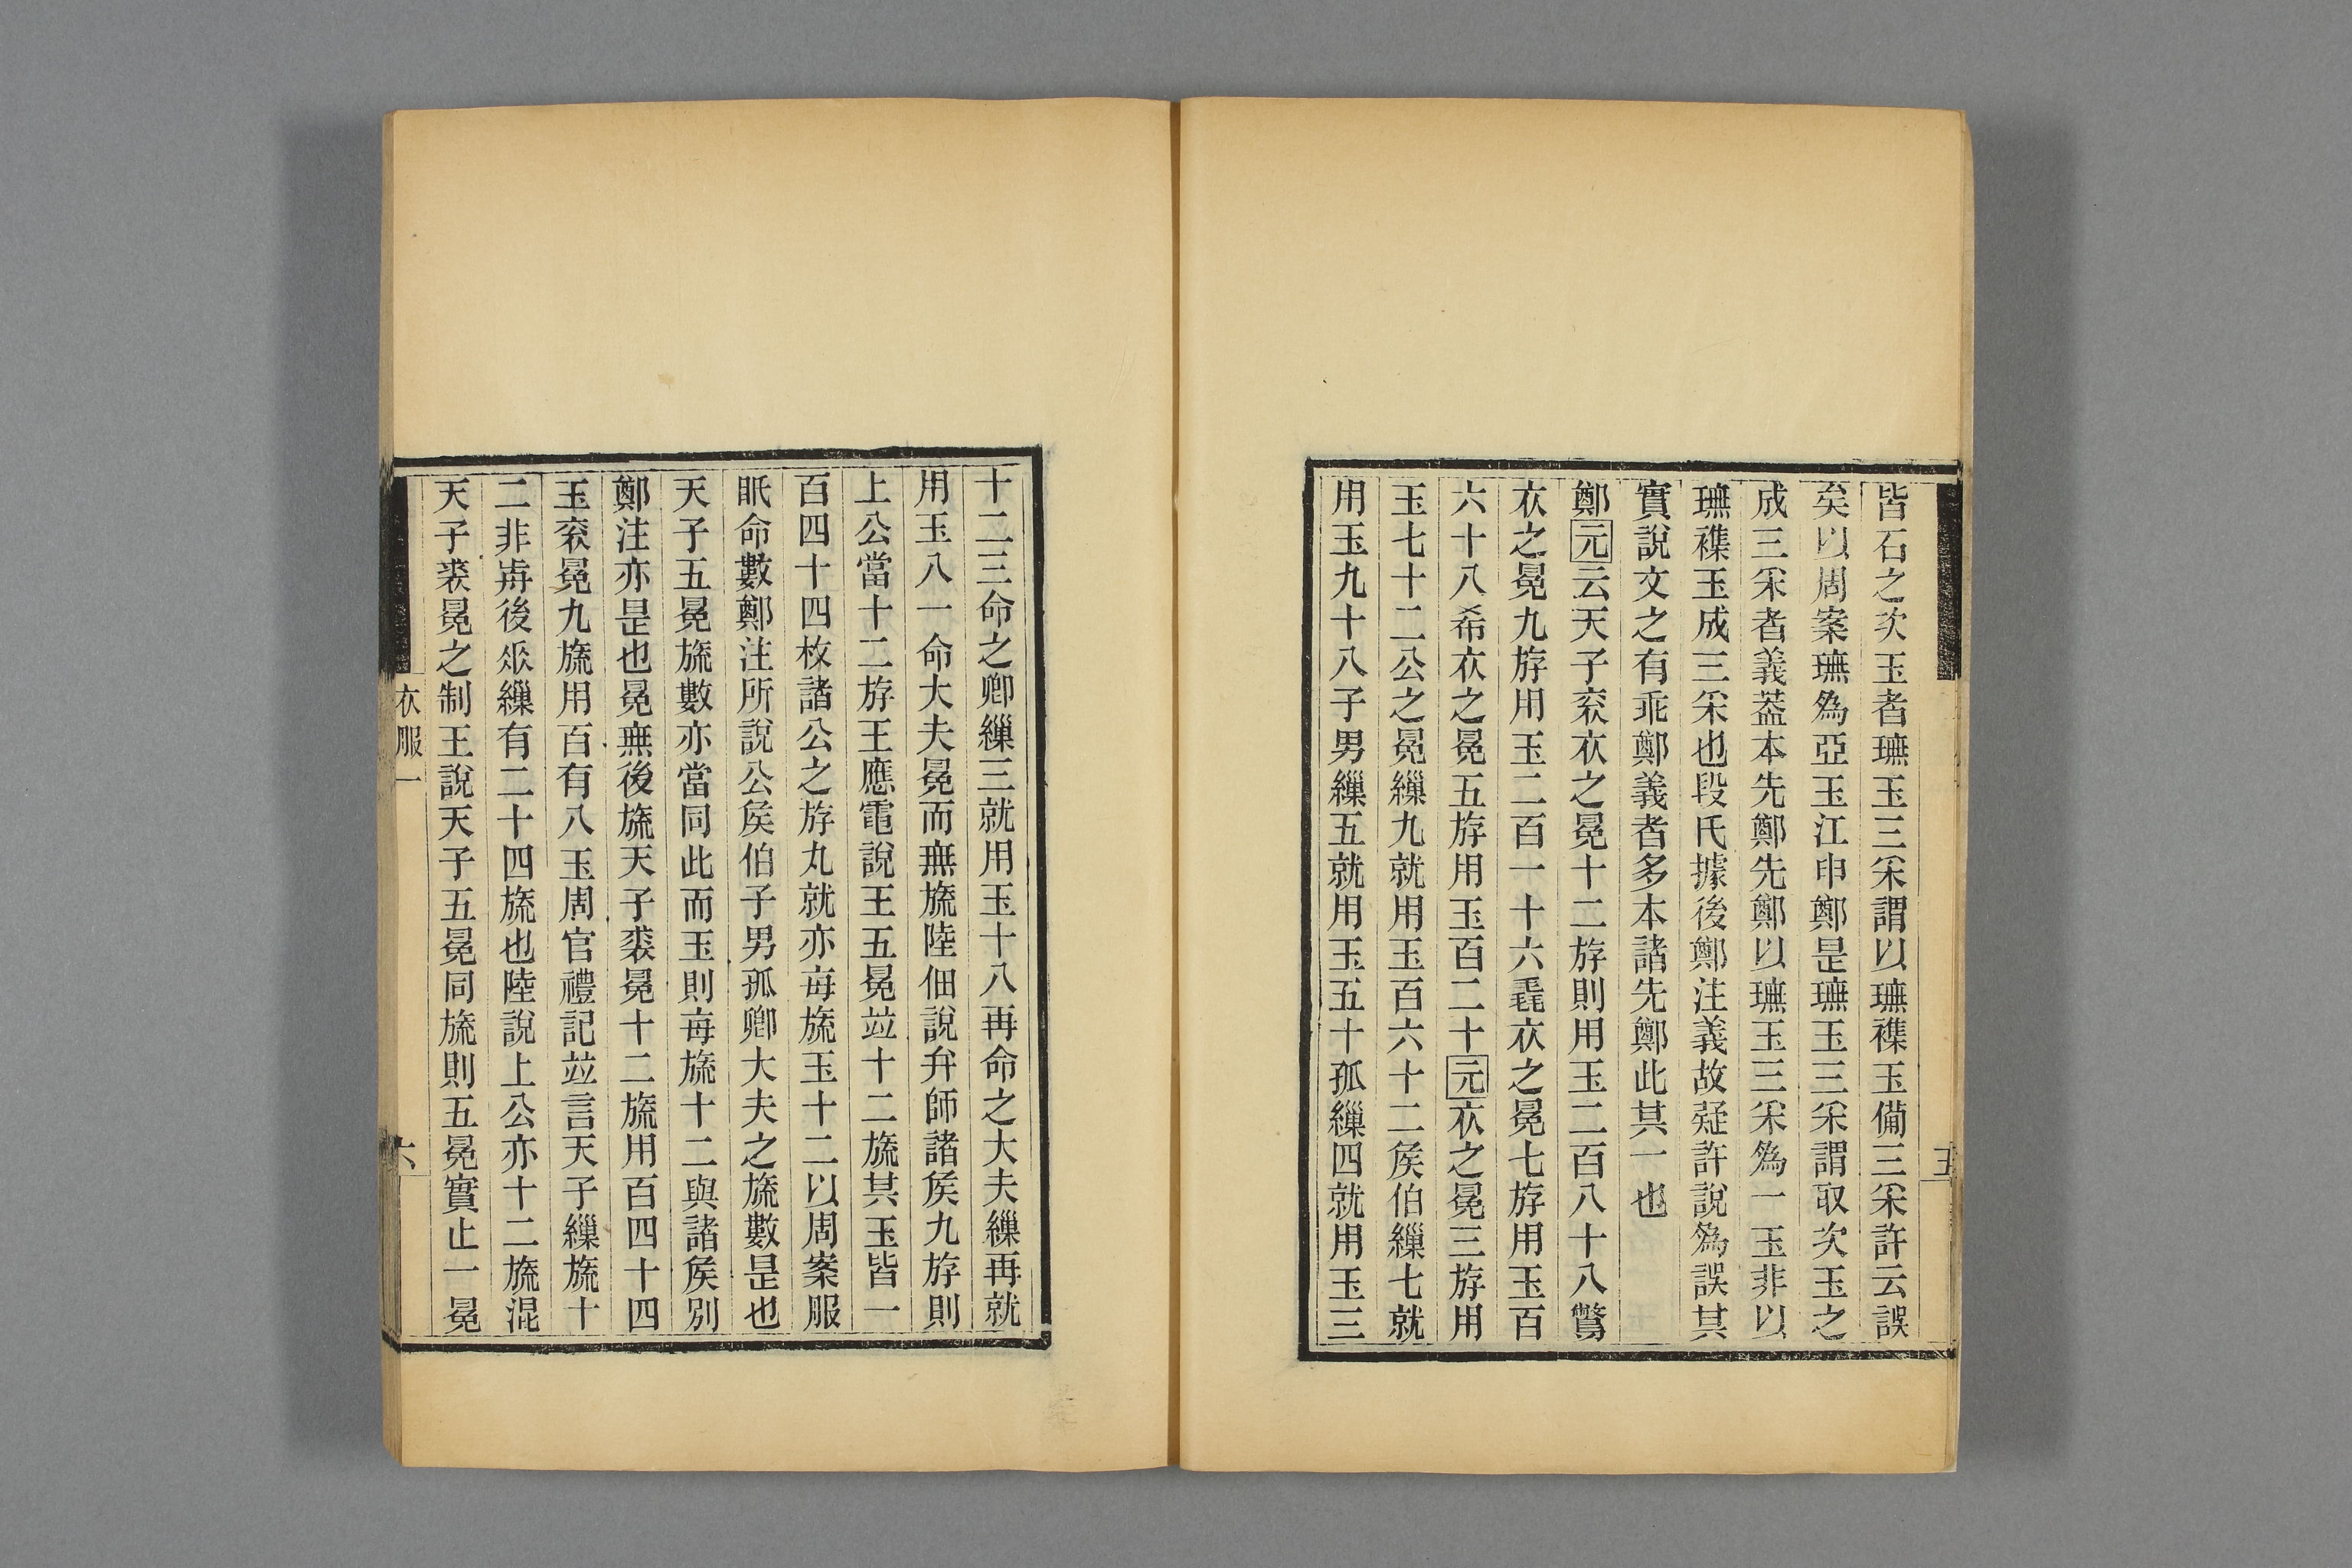 皆石之次玉者璑玉三采謂以璑襍玉備三采許云誤
矣以周案璑爲亞玉江申鄭是璑玉三采謂取次玉之
成三采者義葢本先鄭先鄭以璑玉三采爲一玉非以
璑襍玉成三采也段氏據後鄭注義故疑許說爲誤其
實說文之有乖鄭義者多本諸先鄭此其一也
鄭元云天子袞衣之冕十二斿則用玉二百八十八鷩
衣之冕九斿用玉二百一十六毳衣之冕七斿用玉百
六十八希衣之冕五斿用玉百二十元衣之冕三斿用
玉七十二公之冕繅九就用玉百六十二侯伯繅七就
用玉九十八子男繅五就用玉五十孤繅四就用玉三
十二三命之卿繅三就用玉十八再命之大夫繅再就
用玉八一命大夫冕而無旒陸佃說弁師諸侯九斿則
上公當十二斿王應電說王五冕竝十二旒其玉皆一
百四十四枚諸公之斿丸就亦每旒玉十二以周案服
眂命數鄭注所說公侯伯子男孤卿大夫之旒數是也
天子五冕旒數亦當同此而玉則每旒十二與諸侯別
鄭注亦是也冕無後旒天子裘冕十二旒用百四十四
玉袞冕九旒用百有八玉周官禮記竝言天子繅旒十
二非歬後𠂢繅有二十四旒也陸說上公亦十二旒混
天子裘冕之制王說天子五冕同旒則五冕實止一冕
衣服一
六